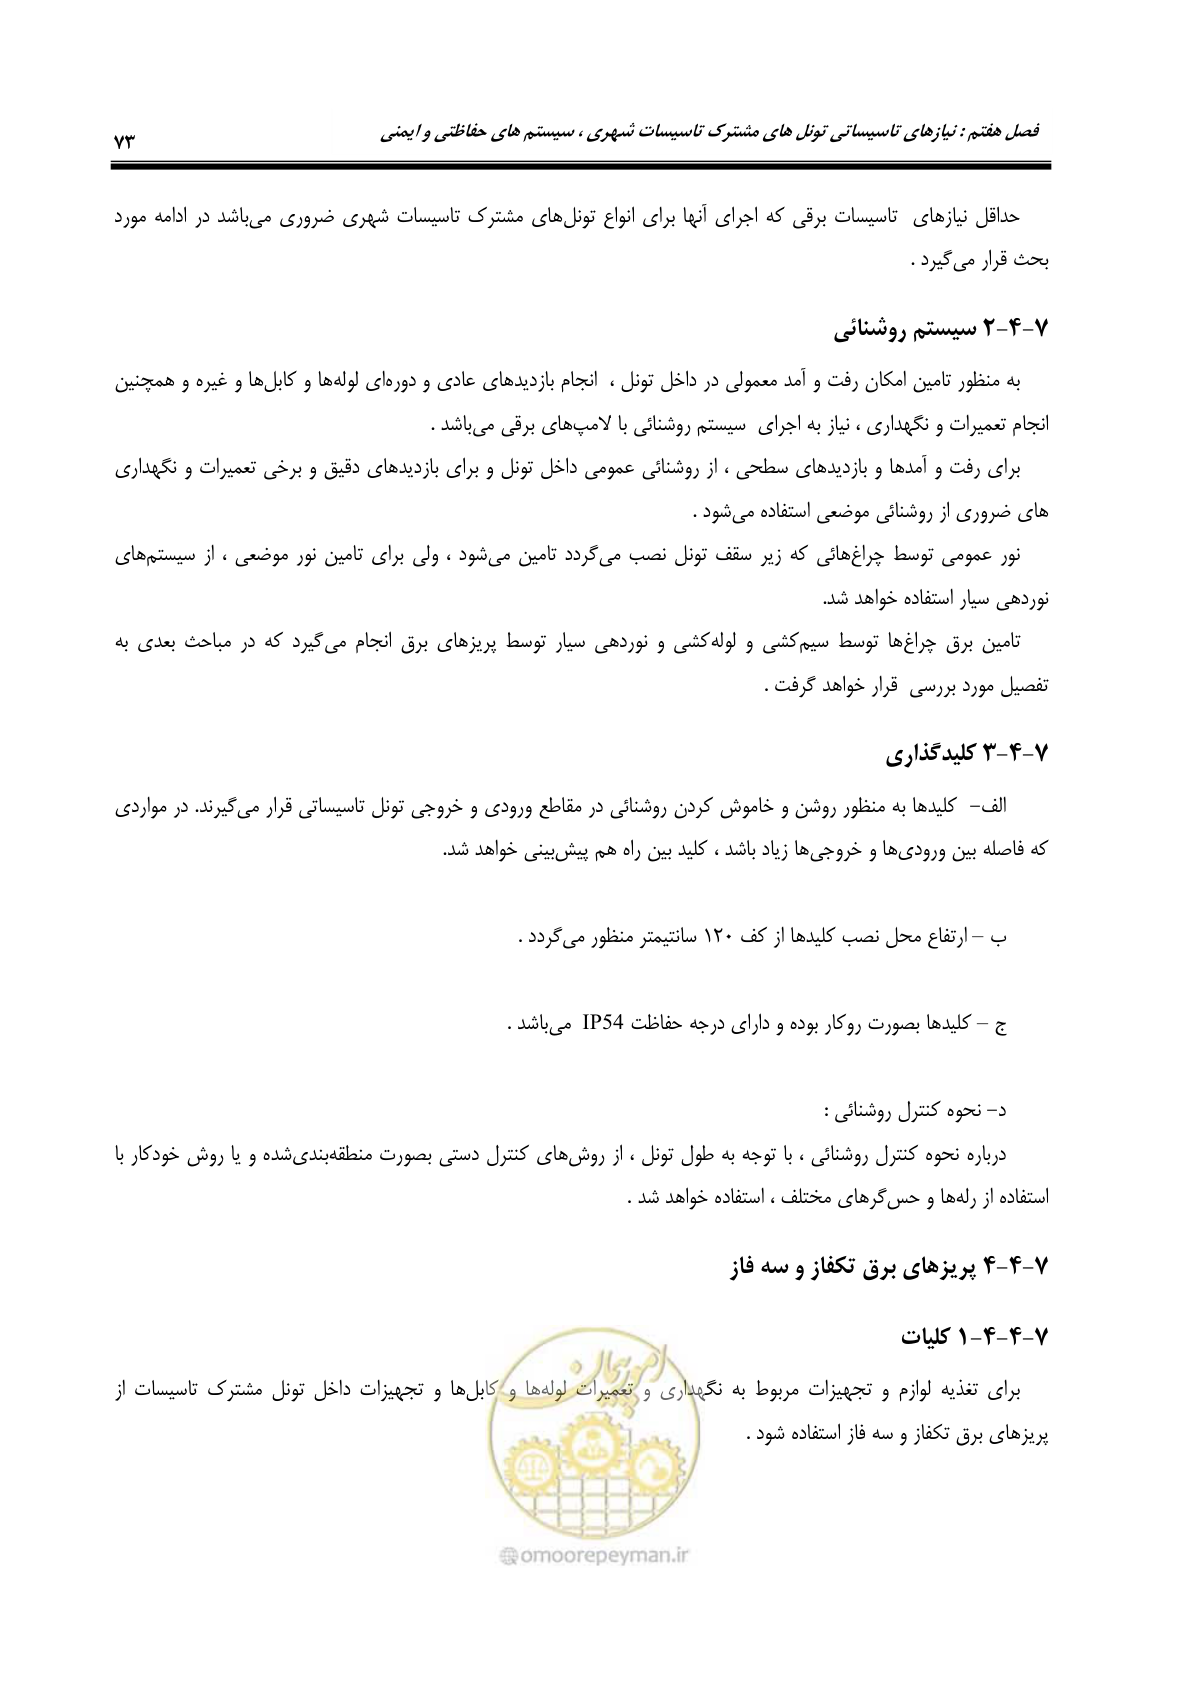 فصل هفتم : نیازهای تاسیساتی تونل های مشترک تاسیسات شهری ، سیستم های حفاظتی و ایمنی
۷۳
حداقل نیازهای تاسیسات برقی که اجرای آنها برای انواع تونل‌های مشترک تاسیسات شهری ضروری می‌باشد در ادامه مورد
بحث قرار می‌گیرد .
۷-۴-۲ سیستم روشنائی
به منظور تامین امکان رفت و آمد معمولی در داخل تونل ، انجام بازدیدهای عادی و دوره‌ای لوله‌ها و کابل‌ها و غیره و همچنین
انجام تعمیرات و نگهداری ، نیاز به اجرای سیستم روشنائی با لامپ‌های برقی می‌باشد .
برای رفت و آمدها و بازدیدهای سطحی ، از روشنائی عمومی داخل تونل و برای بازدیدهای دقیق و برخی تعمیرات و نگهداری
های ضروری از روشنائی موضعی استفاده می‌شود .
نور عمومی توسط چراغ‌هائی که زیر سقف تونل نصب می‌گردد تامین می‌شود ، ولی برای تامین نور موضعی ، از سیستم‌های
نوردهی سیار استفاده خواهد شد.
تامین برق چراغ‌ها توسط سیم‌کشی و لوله‌کشی و نوردهی سیار توسط پریزهای برق انجام می‌گیرد که در مباحث بعدی به
تفصیل مورد بررسی قرار خواهد گرفت .
۷-۴-۳ کلیدگذاری
الف- کلیدها به منظور روشن و خاموش کردن روشنائی در مقاطع ورودی و خروجی تونل تاسیساتی قرار می‌گیرند. در مواردی
که فاصله بین ورودی‌ها و خروجی‌ها زیاد باشد ، کلید بین راه هم پیش‌بینی خواهد شد.
ب – ارتفاع محل نصب کلیدها از کف ۱۲۰ سانتیمتر منظور می‌گردد .
ج – کلیدها بصورت روکار بوده و دارای درجه حفاظت IP54 می‌باشد .
د- نحوه کنترل روشنائی :
درباره نحوه کنترل روشنائی ، با توجه به طول تونل ، از روش‌های کنترل دستی بصورت منطقه‌بندی‌شده و یا روش خودکار با
استفاده از رله‌ها و حس‌گرهای مختلف ، استفاده خواهد شد .
۷-۴-۴ پریزهای برق تکفاز و سه فاز
۷-۴-۴-۱ کلیات
برای تغذیه لوازم و تجهیزات مربوط به نگهداری و تعمیرات لوله‌ها و کابل‌ها و تجهیزات داخل تونل مشترک تاسیسات از
پریزهای برق تکفاز و سه فاز استفاده شود .
امور پیمان
omoorepeyman.ir